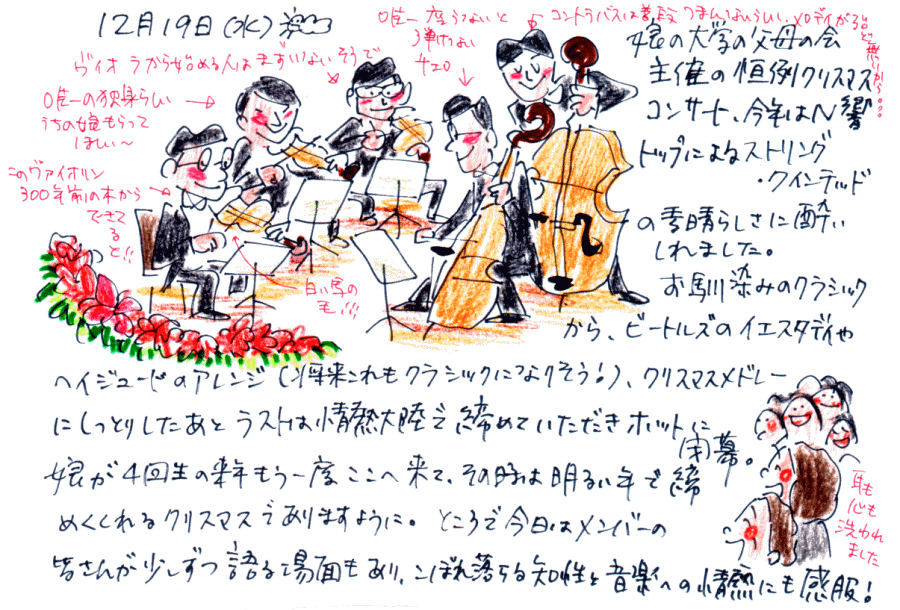 12月19日(水)
唯一座らないと
弾けない
チェロ
コントラバスは普段つまんないらしい、メロディが殆ど無いから。。。
ヴィオラから始める人はまずいないそうで
唯一の独身らしい
うちの娘もらって
ほしい～
このヴァイオリン
300年前の木から
できて
ると!!
白い馬の
毛!!!
娘の大学の父母の会
主催の恒例クリスマス
コンサート、今年はN響
トップによるストリング
・クインテッド
の素晴らしさに酔い
しれました。
お馴染みのクラシック
から、ビートルズのイエスタデイや
ヘイジュードのアレンジ(将来これもクラシックになりそう!)、クリスマスメドレー
にしっとりしたあと ラストは情熱大陸で締めていただきホットに
閉幕。
娘が4回生の来年もう一度ここへ来て、その時は明るい年で締
めくくれるクリスマスでありますように。ところで今日はメンバーの
皆さんが少しずつ語る場面もあり、こぼれ落ちる知性と音楽への情熱にも感服!
耳も
心も
洗われ
ました